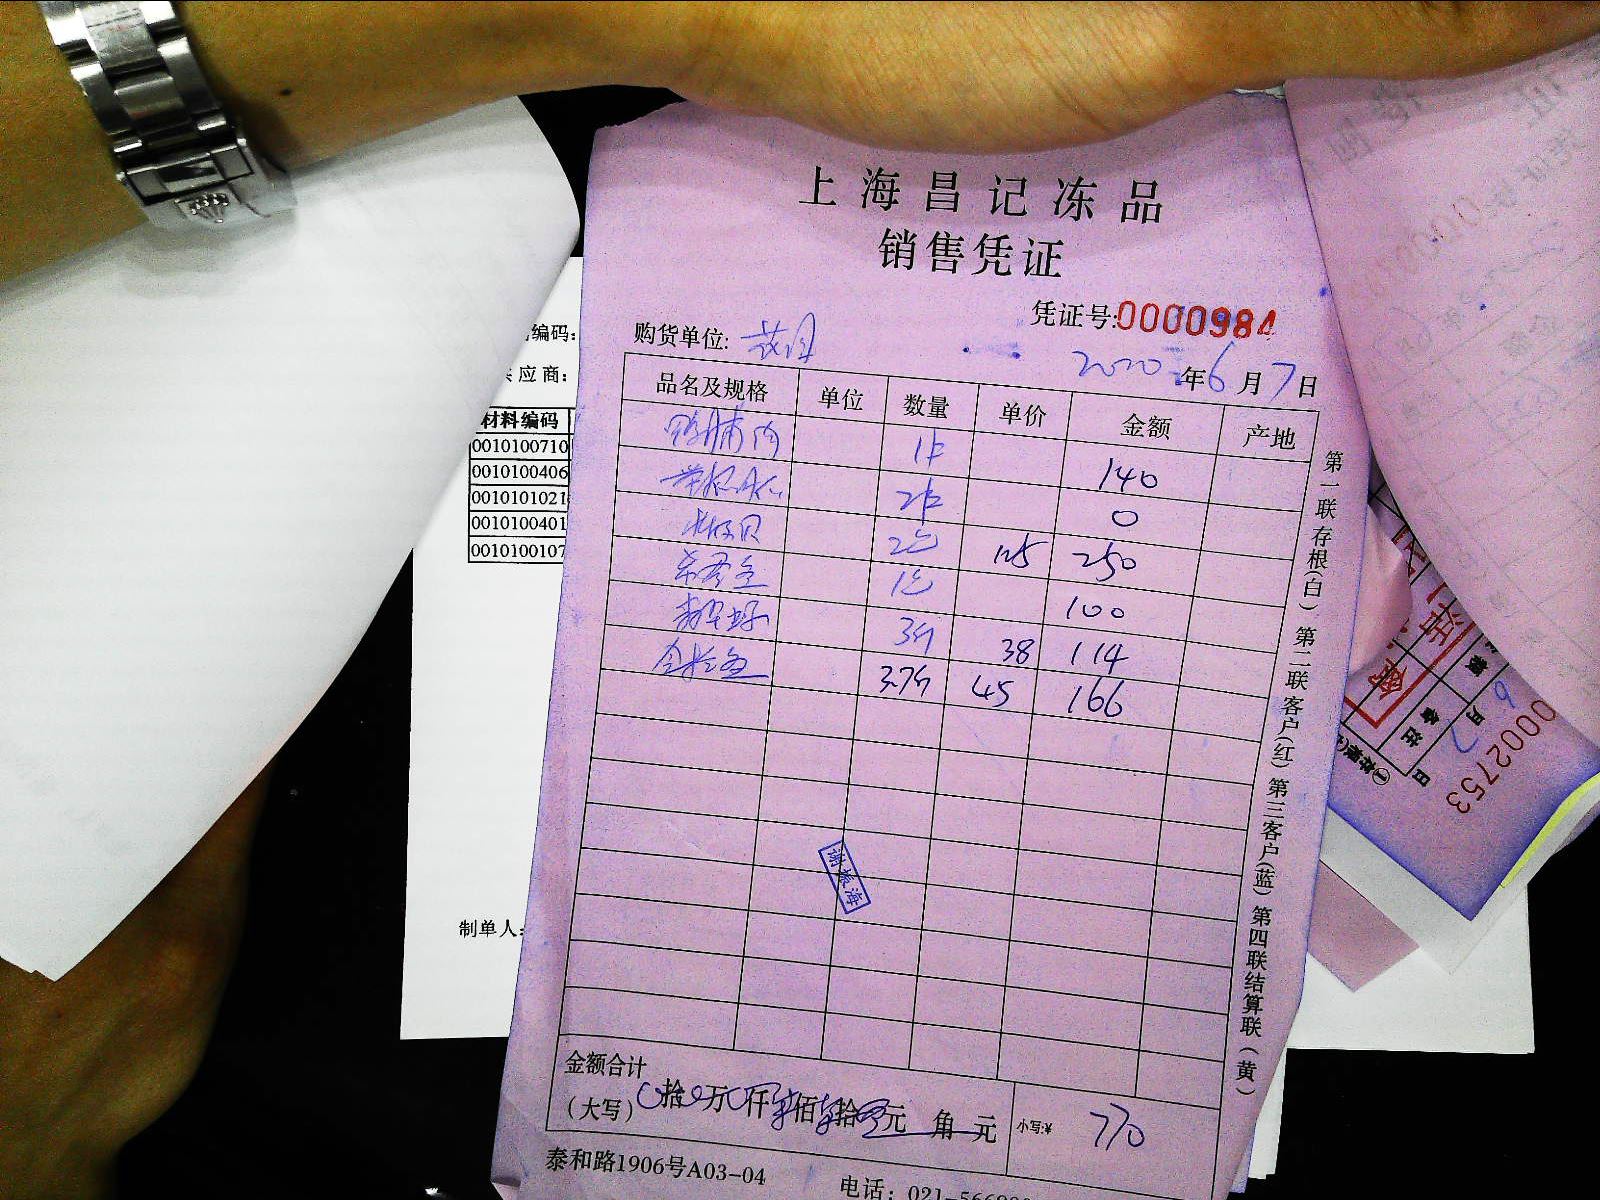 上海昌记冻品
销售凭证
凭证号:0000984
购货单位:
2020年6月7日
品名及规格 单位 数量 单价 金额 产地
1件 140
2件 0
2包 125 250
1包 100
3斤 38 114
3.7斤 45 166
金额合计
(大写) 0拾0万0仟柒佰柒拾零元 角 元 小写:¥ 770
泰和路1906号A03-04
电话: 021-566
第一联存根(白) 第二联客户(红) 第三客户(蓝) 第四联结算联(黄)
谢振海
编码:
应商:
材料编码
0010100710
0010100406
0010101021
0010100401
0010100107
制单人:
0002753
6月7日
备注